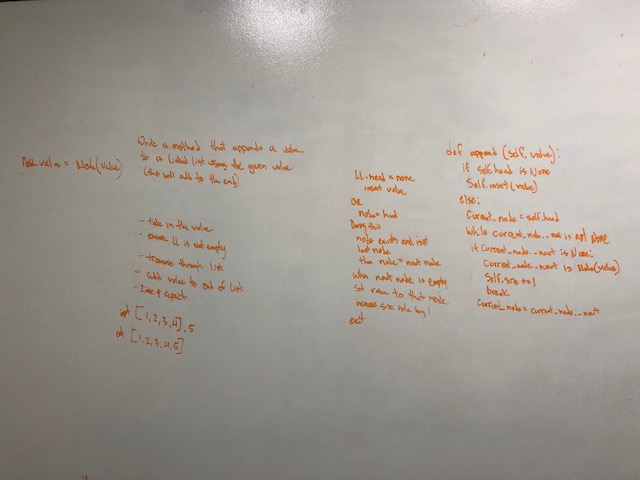 Write a method that appends a value
to a linked list using the given value
(this will add to the end)
value = Node(value)
- take in the value
- ensure LL is not empty
- traverse through list
- add value to end of list
- size & expect
[1,2,3,4], 5
[1,2,3,4,5]
LL.head = none
insert value
OR
node = head
During this
node exists and isnt
last node
then node = next node
when next node is empty
set value to that node
increase size by 1
exit
def append (self, value):
if self.head is None
Self.insert(value)
else:
Current_node = self.head
while current_node._next is not None
if current_node._next is None:
Current_node._next is Node(value)
Self.size += 1
break
Current_node = current_node._next